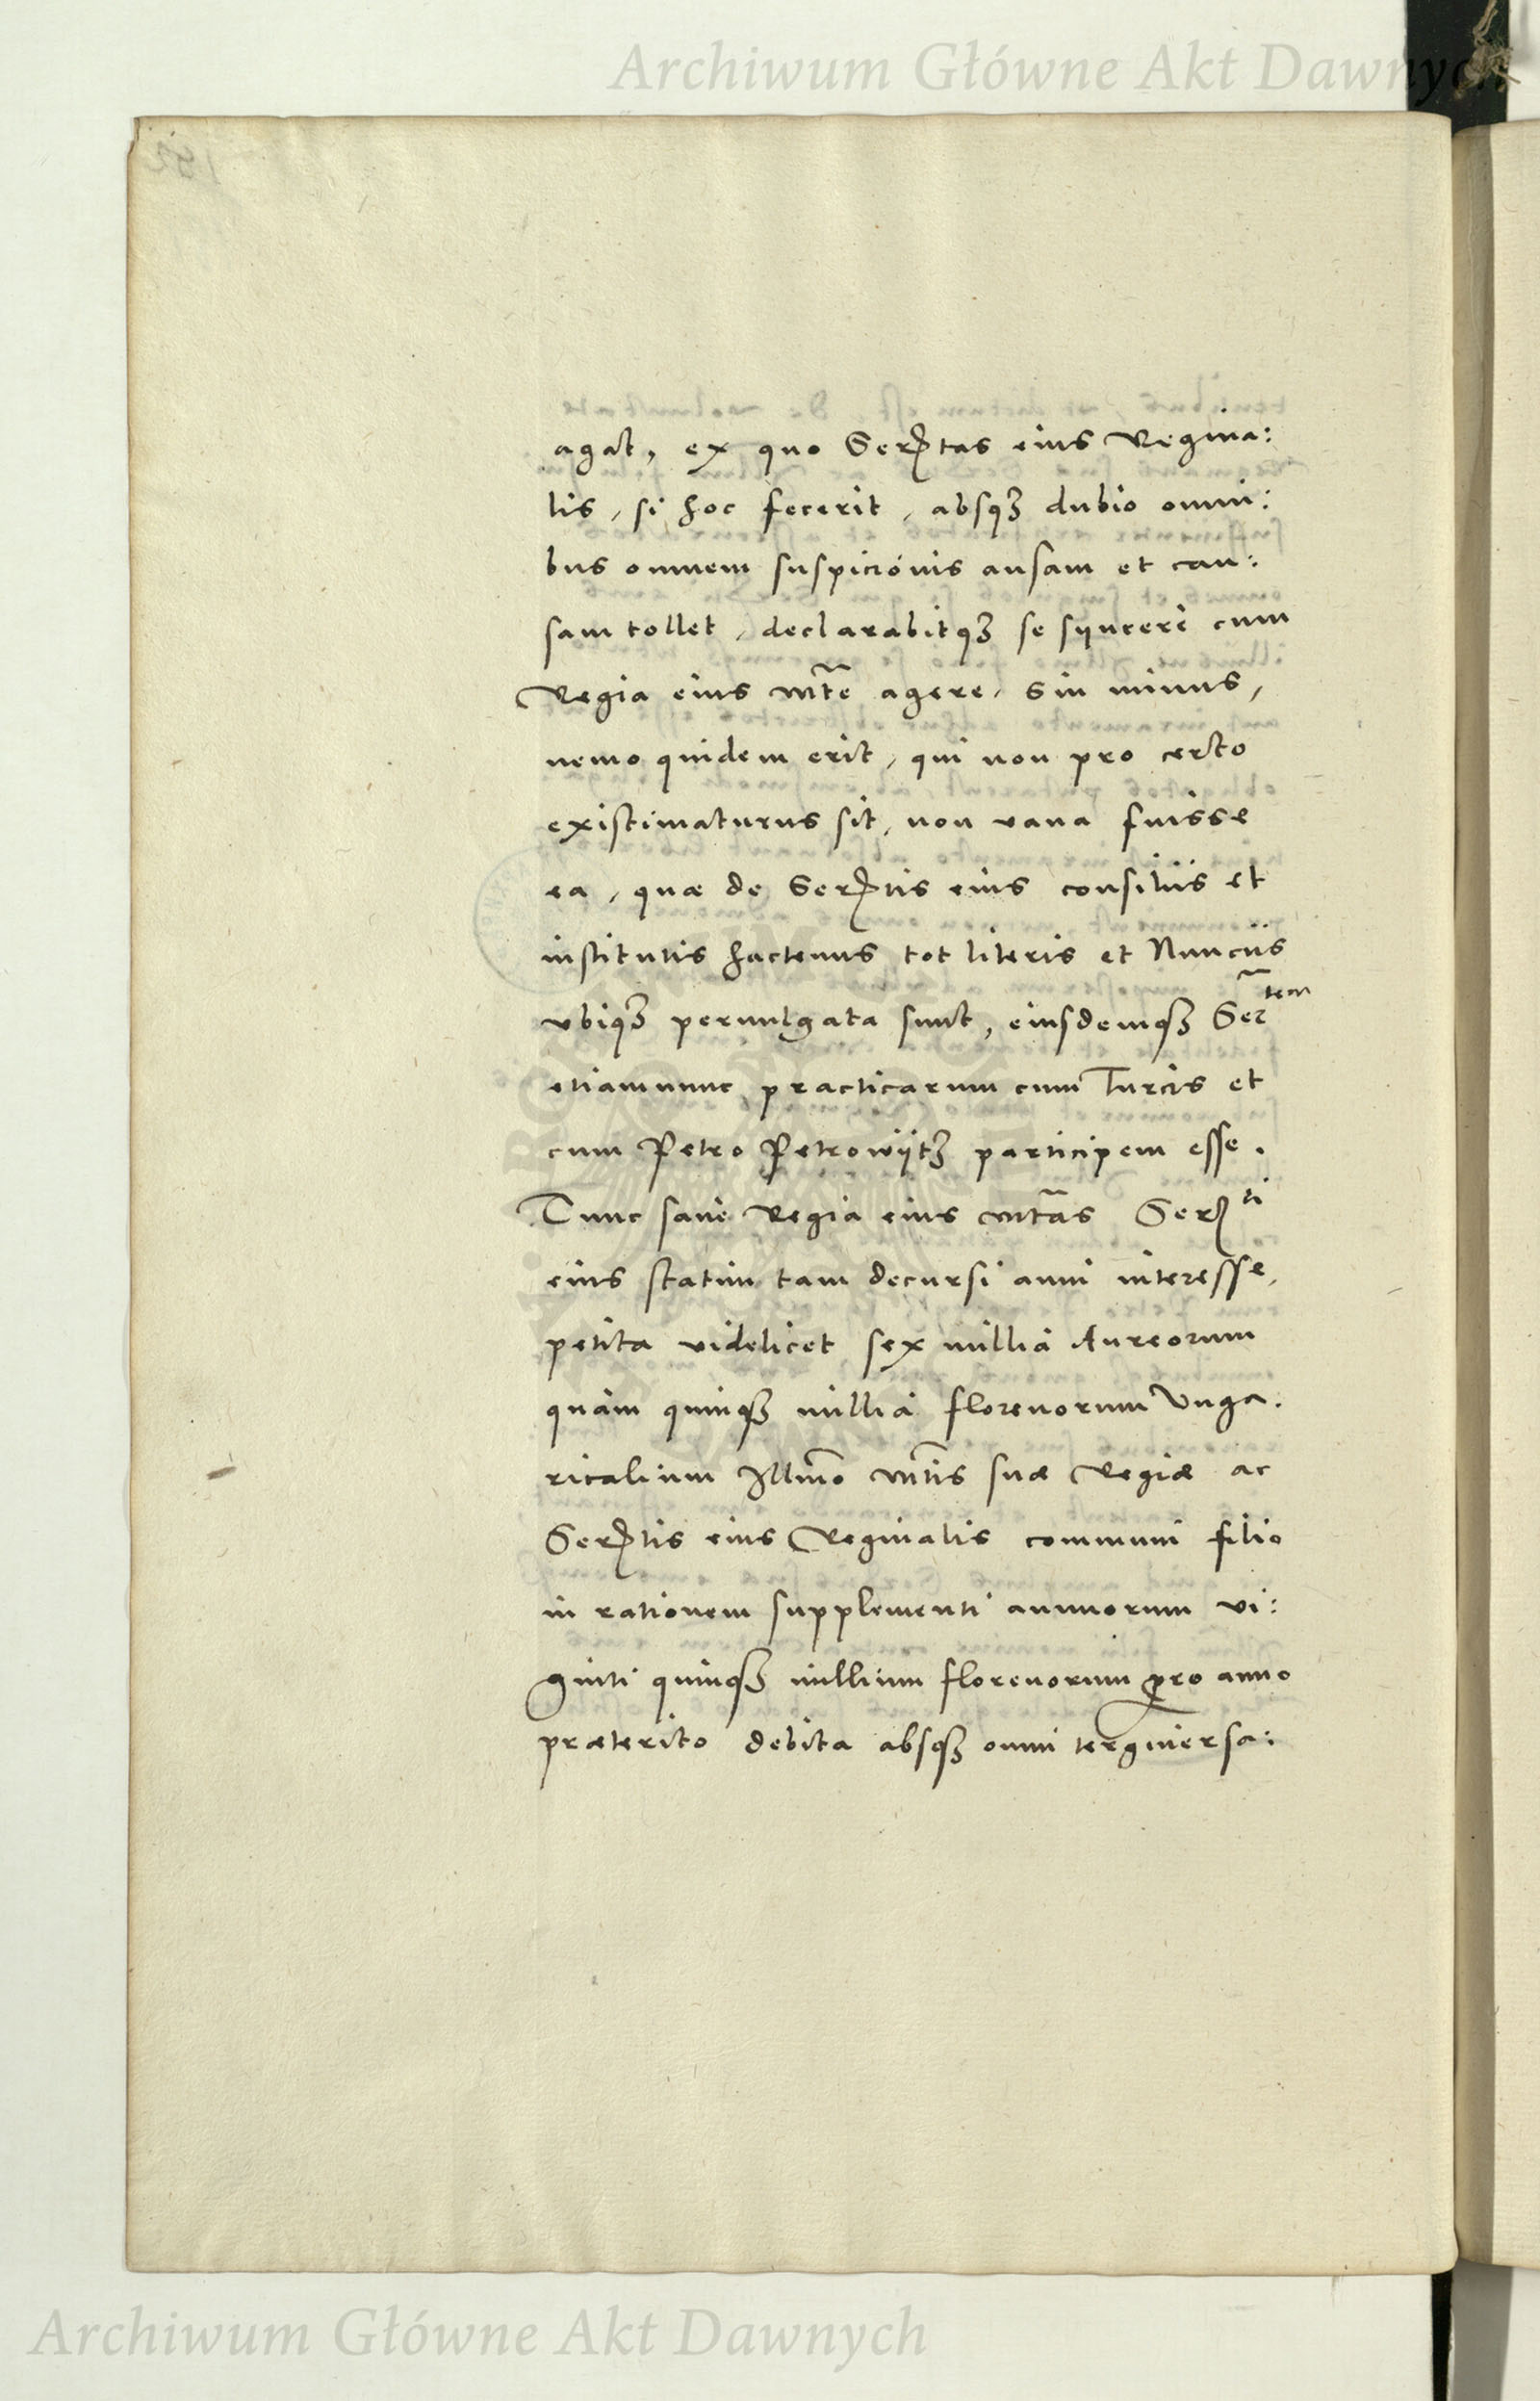 Archiwum Główne Akt Dawnych
agat, ex quo Serẽtas eius Regina:
lis, si hoc fecerit, absqꝫ dubio omni:
bus omnem suspiciónis ansam et cau:
sam tollet, declarabitqꝫ se syncerè cum
Regia eius Mt̃e agere, Sin minus,
nemo quidem erit, qui non pro certo
existimaturus sit, non vana fuisse
ea, quæ de Serẽtis eius consilijs et
institutis hactenus tot literis et Nuncijs
vbiqꝫ peruulgata sunt, eiusdemqꝫ Ser̃tem
etiamnunc practicarum cum Turcis et
cum Petro Petrowytꝫ participem esse.
Tunc sanè Regia eius Mt̃as Serti
eius statim tam decursi anni interesse,
petita videlicet sex millia Aureorum
quàm quinqꝫ millia florenorum Vnga.
ricalium Illmo Mt̃is suæ Regiæ ac
Serẽtis eius Reginalis communi filio
in rationem supplementi annuorum vi:
ginti quinqꝫ millium florenorum pro anno
præterito debita absqꝫ omni tergiuersa:
Archiwum Główne Akt Dawnych